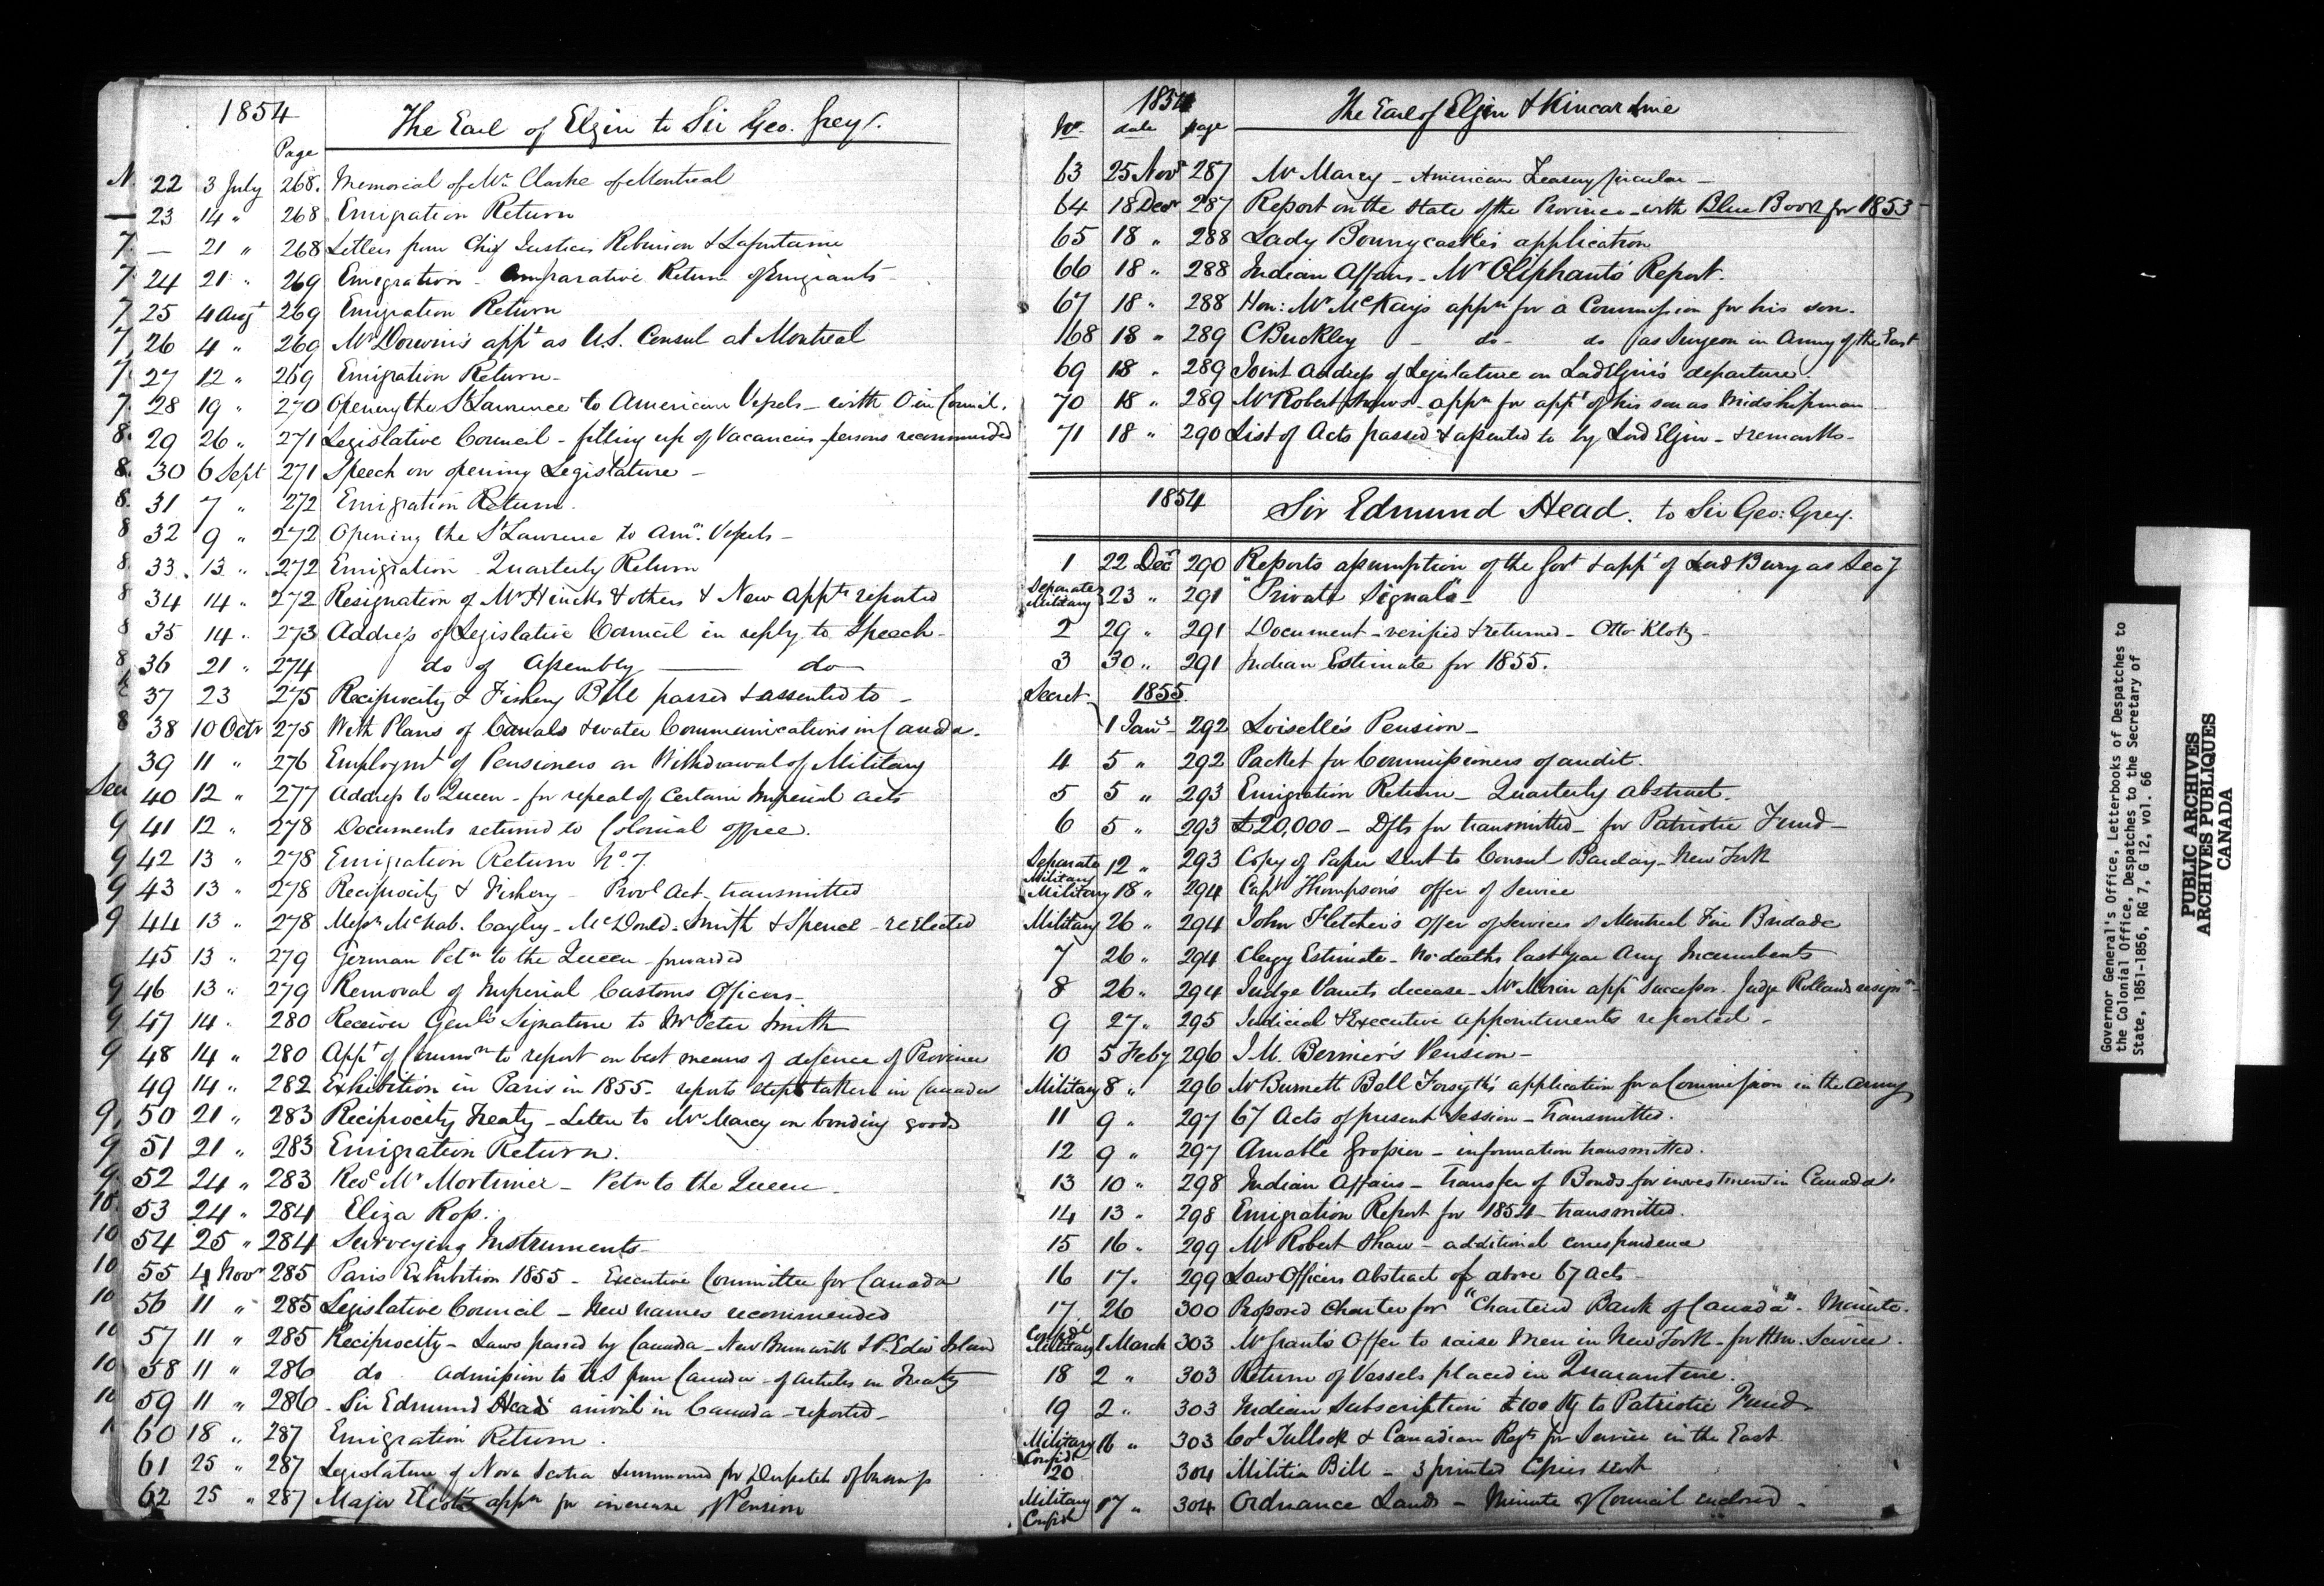 1854
The Earl of Elgin to Sir Geo. Grey.
Page
N. 22 3 July 268. Memorial of Mr. Clarke of Montreal
— 23 14 " 268 Emigration Return
7. — 21 " 268 Letters from Chief Justices Robinson & Lafontaine
7 24 21 " 269 Emigration - Comparative Return of Emigrants -
7 25 4 Augt 269 Emigration Return
7 26 4 " 269 Mr Dorwin's appt as U.S. Consul at Montreal
7. 27 12 " 269 Emigration Return -
7. 28 19 " 270 Opening the St Lawrence to American Vessels - with O. in Council.
8. 29 26 " 271 Legislative Council - filling up of Vacancies - persons recommended
8. 30 6 Sept 271 Speech on opening Legislature -
8. 31 7 " 272 Emigration Return.
8 32 9 " 272 Opening the St Lawrence to Amn. Vessels -
8. 33. 13 " 272 Emigration Quarterly Return
8 34 14 " 272 Resignation of Mr Hincks & others & New Appts reported
8 35 14 " 273 Address of Legislative Council in reply to Speech -
8. 36 21 " 274 do of Assembly — do —
8 37 23 275 Reciprocity & Fishery Bill passed & assented to -
8 38 10 Octr 275 With Plans of Canals & water Communications in Canada.
39 11 " 276 Employmt of Pensioners on Withdrawal of Military
40 12 " 277 Address to Queen - for repeal of Certain Imperial Acts
9 41 12 " 278 Documents returned to Colonial Office.
9 42 13 " 278 Emigration Return No. 7.
9 43 13 " 278 Reciprocity & Fishery - Provl Act - transmitted
9 44 13 " 278 Messrs McNab. Cayley - McDonld - Smith & Spence - reelected
45 13 " 279 German Petn to the Queen - forwarded
9 46 13 " 279 Removal of Imperial Customs Officers -
9 47 14 " 280 Receiver Genls Signature to Mr Peter Smith
9 48 14 " 280 Appt of Commn to report on best means of defence of Province
49 14 " 282 Exhibition in Paris in 1855 - reports steps taken in Canada
9. 50 21 " 283 Reciprocity Treaty - Letter to Mr Marcy on bonding goods
9 51 21 " 283 Emigration Return.
9. 52 24 " 283 Revd Mr Mortimer - Petn to the Queen
10. 53 24 " 284 Eliza Ross.
10 54 25 " 284 Surveying Instruments -
10 55 4 Novr 285 Paris Exhibition 1855 - Executive Committee for Canada
10 56 11 " 285 Legislative Council - New names recommended
10 57 11 " 285 Reciprocity - Laws passed by Canada - New Brunswick & P. Edwd Island
10 58 11 " 286 do admission to US from Canada - of articles in Treaty
10 59 11 " 286 - Sir Edmund Head's arrival in Canada - reported -
60 18 " 287 Emigration Return.
61 25 " 287 Legislature of Nova Scotia summoned for Despatch of business
62 25 " 287 Major appn for increase of Pension
1854
No. date page The Earl of Elgin & Kincardine
63 25 Novr 287 Mr Marcy - American Treasury Circular -
64 18 Decr 287 Report on the State of the Province - with Blue Book for 1853 -
65 18 " 288 Lady Bonnycastle's application
66 18 " 288 Indian Affairs - Mr Oliphant's Report.
67 18 " 288 Hon: Mr McKay's appn for a Commission for his son.
68 18 " 289 C Buckley - do - do (as Surgeon in Army of the East
69 18 " 289 Joint Address of Legislature on Lord Elgin's departure
70 18 " 289 Mr Robert Shaws - appn for appt of his son as Midshipman
71 18 " 290 List of Acts passed & assented to by Lord Elgin - & remarks -
1854 Sir Edmund Head. to Sir Geo: Grey.
1 22 Decr 290 Reports assumption of the Govt & appt of Lord Bury as Secy
Separate Military 23 " 291 "Private Signals" -
2 29 " 291 Document - verified & returned - Otto Klotz -
3 30 " 291 Indian Estimate for 1855.
Secret 1855
1 Jany 292 Loiselle's Pension -
4 5 " 292 Packet for Commissioners of audit.
5 5 " 293 Emigration Return - Quarterly Abstract.
6 5 " 293 £20,000 - Dfts for transmitted - for Patriotic Fund -
Separate Military 12 " 293 Copy of Paper sent to Consul Barclay - New York
Military 18 " 294 Capt Thompson's offer of Service
Military 26 " 294 John Fletcher's Offer of Services of Montreal Fire Bridade
7 26 " 294 Clergy Estimate - No deaths last year Amg Incumbents
8 26 " 294 Judge Vanets decease - Mr Morin appt Successor. Judge Rollands resignn -
9 27 " 295 Judicial & Executive appointments reported -
10 5 Feby 296 J.M. Bernier's Pension -
Military 8 " 296 Mr Burnett Bell Forsyth's application for a Commission in the Army
11 9 " 297 67 Acts of present Session - Transmitted.
12 9 " 297 Amable - information transmitted.
13 10 " 298 Indian Affairs - Transfer of Bonds for investment in Canada.
14 13 " 298 Emigration Report for 1854 - transmitted.
15 16 " 299 Mr Robert Shaw - additional correspondence
16 17 " 299 Law Officers Abstract of above 67 Acts -
17 26 300 Proposed Charter for "Chartered Bank of Canada". Minute.
Confdl Military 1 March 303 Mr Grant's Offer to raise Men in New York - for Hm. Service.
18 2 " 303 Return of Vessels placed in Quarantine.
19 2 " 303 Indian Subscription £100 Stg to Patriotic Fund
Military Confidl 16 " 303 Col Tulloch & Canadian Regts for Service in the East
20 304 Militia Bill - 3 printed Copies sent
Military Confidl 17 " 304 Ordnance Lands - Minute of Council enclosed -
Governor General's Office, Letterbooks of Despatches to
the Colonial Office, Despatches to the Secretary of
State, 1851-1856, RG 7, G 12, vol. 66
PUBLIC ARCHIVES
ARCHIVES PUBLIQUES
CANADA